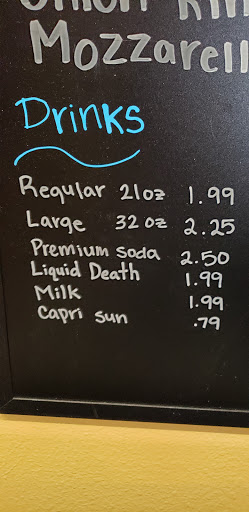 Onion Rin
Mozzarell
Drinks
Regular 21oz 1.99
Large 32 oz 2.25
Premium soda 2.50
Liquid Death 1.99
Milk 1.99
Capri sun .79